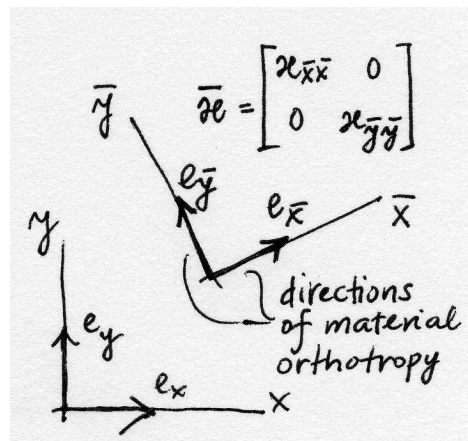 ϰ̄ = [ϰx̄x̄ 0
0 ϰȳȳ]
ȳ
eȳ
ex̄
x̄
y
directions
of material
orthotropy
ey
ex
x